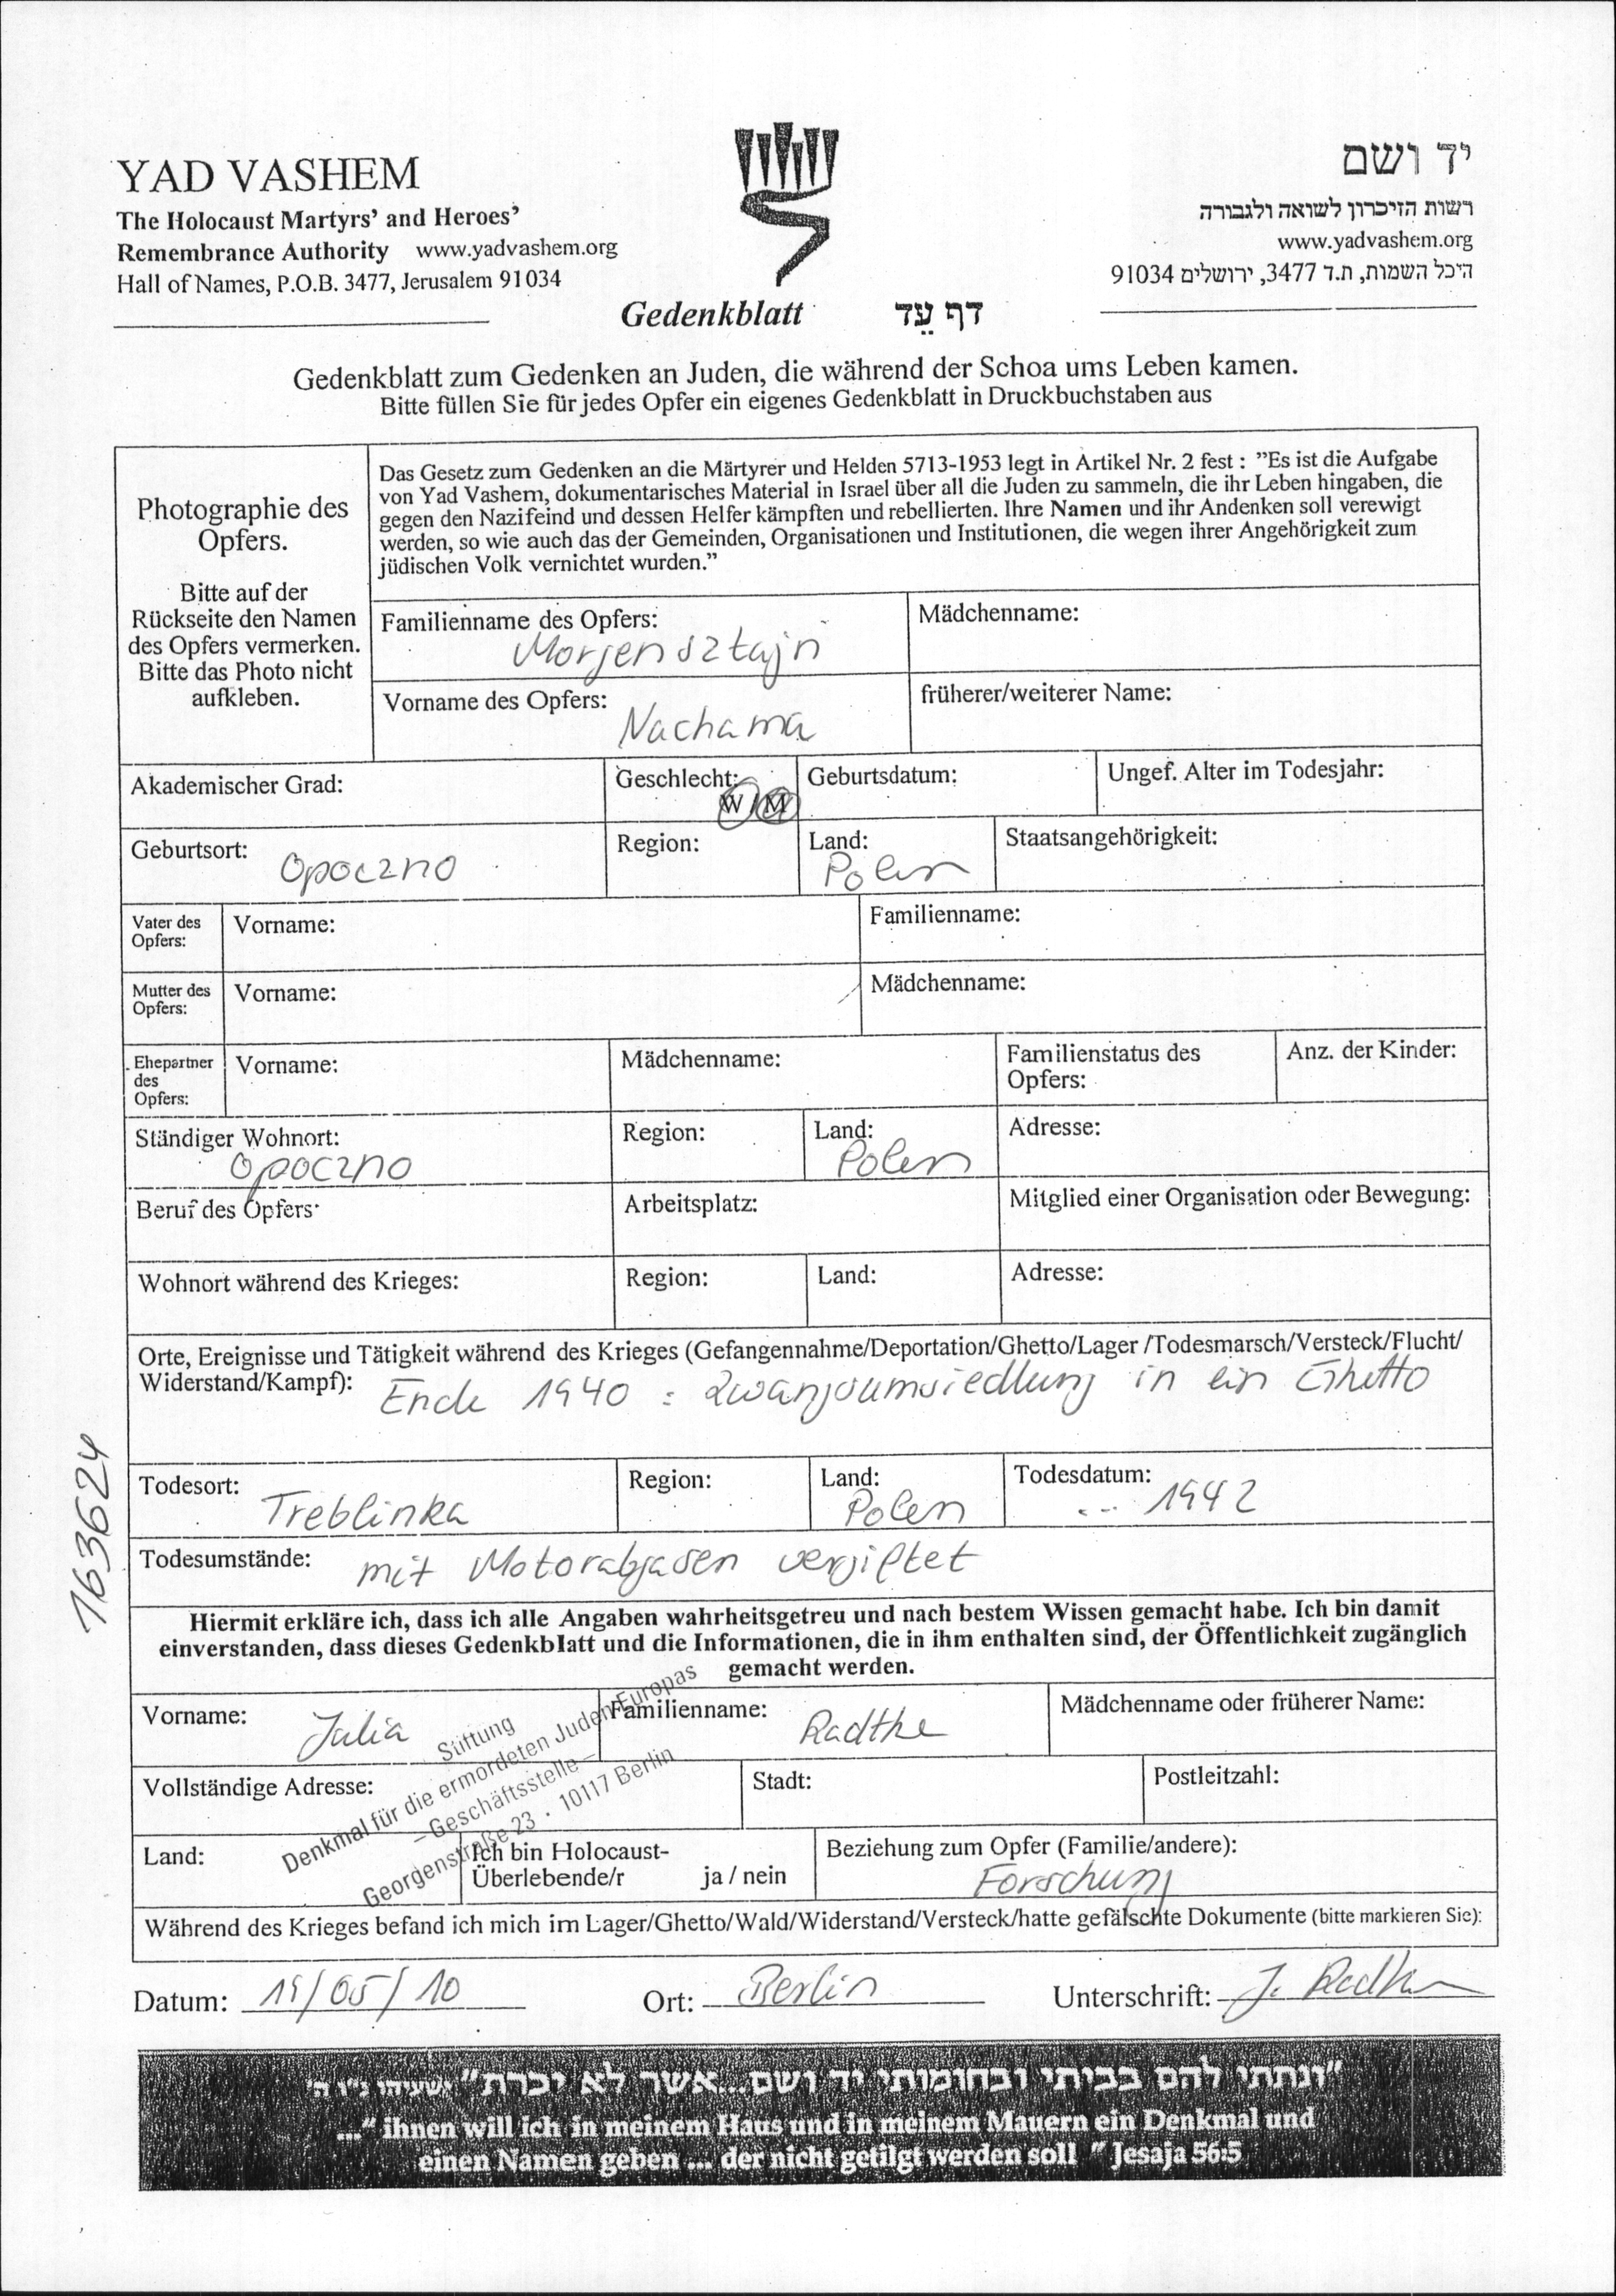 YAD VASHEM
The Holocaust Martyrs' and Heroes'
Remembrance Authority www.yadvashem.org
Hall of Names, P.O.B. 3477, Jerusalem 91034
יד ושם
רשות הזיכרון לשואה ולגבורה
www.yadvashem.org
היכל השמות, ת.ד 3477, ירושלים 91034
Gedenkblatt דף עֵד
Gedenkblatt zum Gedenken an Juden, die während der Schoa ums Leben kamen.
Bitte füllen Sie für jedes Opfer ein eigenes Gedenkblatt in Druckbuchstaben aus
Photographie des
Opfers.
Bitte auf der
Rückseite den Namen
des Opfers vermerken.
Bitte das Photo nicht
aufkleben.
Das Gesetz zum Gedenken an die Märtyrer und Helden 5713-1953 legt in Artikel Nr. 2 fest : "Es ist die Aufgabe
von Yad Vashem, dokumentarisches Material in Israel über all die Juden zu sammeln, die ihr Leben hingaben, die
gegen den Nazifeind und dessen Helfer kämpften und rebellierten. Ihre Namen und ihr Andenken soll verewigt
werden, so wie auch das der Gemeinden, Organisationen und Institutionen, die wegen ihrer Angehörigkeit zum
jüdischen Volk vernichtet wurden."
Familienname des Opfers: Mädchenname:
Morgensztajn
Vorname des Opfers: früherer/weiterer Name:
Nachama
Akademischer Grad: Geschlecht: W / M Geburtsdatum: Ungef. Alter im Todesjahr:
Geburtsort: Opoczno Region: Land: Polen Staatsangehörigkeit:
Vater des Opfers: Vorname: Familienname:
Mutter des Opfers: Vorname: Mädchenname:
Ehepartner des Opfers: Vorname: Mädchenname: Familienstatus des Opfers: Anz. der Kinder:
Ständiger Wohnort: Opoczno Region: Land: Polen Adresse:
Beruf des Opfers: Arbeitsplatz: Mitglied einer Organisation oder Bewegung:
Wohnort während des Krieges: Region: Land: Adresse:
Orte, Ereignisse und Tätigkeit während des Krieges (Gefangennahme/Deportation/Ghetto/Lager /Todesmarsch/Versteck/Flucht/
Widerstand/Kampf): Ende 1940 : Zwangsumsiedlung in ein Ghetto
163624
Todesort: Treblinka Region: Land: Polen Todesdatum: ... 1942
Todesumstände: mit Motorabgasen vergiftet
Hiermit erkläre ich, dass ich alle Angaben wahrheitsgetreu und nach bestem Wissen gemacht habe. Ich bin damit
einverstanden, dass dieses Gedenkblatt und die Informationen, die in ihm enthalten sind, der Öffentlichkeit zugänglich
gemacht werden.
Vorname: Julia Familienname: Radtke Mädchenname oder früherer Name:
Stiftung
Denkmal für die ermordeten Juden Europas
– Geschäftsstelle –
Georgenstraße 23 · 10117 Berlin
Vollständige Adresse: Stadt: Postleitzahl:
Land: Ich bin Holocaust-
Überlebende/r ja / nein Beziehung zum Opfer (Familie/andere):
Forschung
Während des Krieges befand ich mich im Lager/Ghetto/Wald/Widerstand/Versteck/hatte gefälschte Dokumente (bitte markieren Sie):
Datum: 19/05/10 Ort: Berlin Unterschrift: J. Radtke
"ונתתי להם בביתי ובחומותי יד ושם...אשר לא יכרת" ישעיהו נ"ו ה'
..." ihnen will ich in meinem Haus und in meinem Mauern ein Denkmal und
einen Namen geben ... der nicht getilgt werden soll " Jesaja 56:5